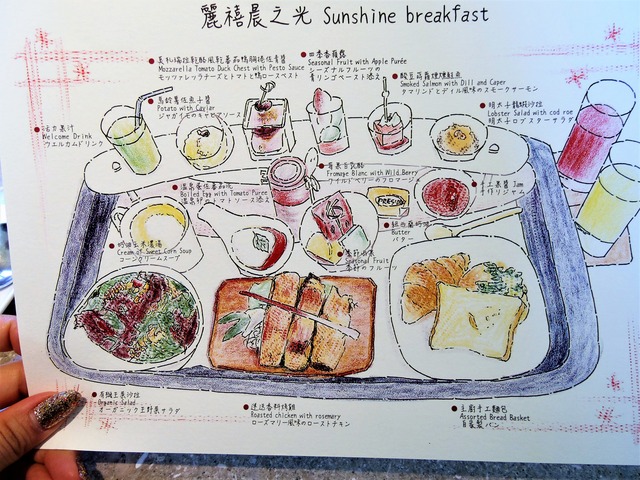 麗禧晨之光 Sunshine breakfast
Mozzarella Tomato Duck Chest with Pesto Sauce
モッツァレッラチーズとトマトと鴨ロースペスト
四季香蘋露
Seasonal Fruit with Apple Purée
シーズナルフルーツの
青リンゴペースト添え
Smoked Salmon with Dill and Caper
タマリンドとディル風味のスモークサーモン
明太子龍蝦沙拉
Lobster Salad with cod roe
明太子ロブスターサラダ
馬鈴薯佐魚子醬
Potato with Caviar
ジャガイモのキャビアソース
活力果汁
Welcome Drink
ウエルカムドリンク
Fromage Blanc with Wild Berry
ワイルドベリーのフロマージュ
手工果醬 Jam
手作りジャム
溫泉蛋佐番茄泥
Boiled Egg with Tomato Puree
温泉卵トマトソース添え
紐西蘭奶油
Butter
バター
奶油玉米濃湯
Cream of Sweet Corn Soup
コーンクリームスープ
季節水果
Seasonal Fruit
季節のフルーツ
有機生菜沙拉
Organic Salad
オーガニック生野菜サラダ
迷迭香料烤雞
Roasted chicken with rosemary
ローズマリー風味のローストチキン
主廚手工麵包
Assorted Bread Basket
自家製パン